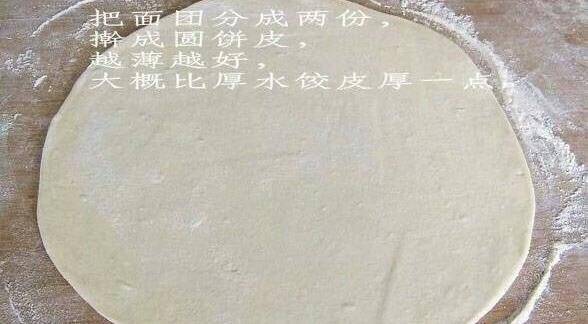 把面团分成两份，
擀成圆饼皮，
越薄越好，
大概比厚水饺皮厚一点。